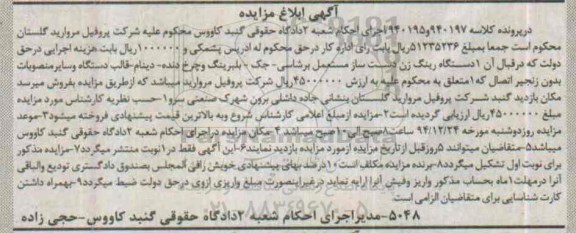 آگهی ابلاغ مزایده
درپرونده کلاسه ۹۴۰۱۹۷و۹۴۰۱۹۵اجرای احکام شعبه ۲دادگاه حقوقی گنبد کاووس محکوم علیه شرکت پروفیل مروارید گلستان
محکوم است جمعا بمبلغ ۵۱۲۳۵۲۳۶ریال بابت رای اداره کار درحق محکوم له ادریس پشمکی و ۱۰۰۰۰۰۰ریال بابت هزینه اجرایی درحق
دولت که درقبال آن ۱دستگاه رینگ زن دست ساز مستعمل برشاسی- جک - بلبرینگ وچرخ دنده- دینام-قالب دستگاه وسایرمنصوبات
بدون زنجیر اتصال که۱متعلق به محکوم علیه به ارزش ۴۵۰۰۰۰۰۰ریال شرکت پروفیل مروارید میباشد که ازطریق مزایده بفروش میرسد
مکان بازدید گنبد شرکت پروفیل مروارید گلستان بنشانی جاده داشلی برون شهرک صنعتی سرو۱-حسب نظریه کارشناس مورد مزایده
مبلغ ۴۵۰۰۰۰۰۰ریال ارزیابی گردیده است۲-مزایده ازمبلغ اعلامی کارشناس شروع وبه بالاترین قیمت پیشنهادی فروخته میشود۳-موعد
مزایده روزدوشنبه مورخه ۹۴/۱۲/۲۴ ساعت۸صبح الی۱۰صبح میباشد ۴-مکان مزایده دراجرای احکام شعبه ۲دادگاه حقوقی گنبد کاووس
میباشد۵-متقاضیان میتوانند ۵روزقبل ازتاریخ مزایده ازمورد مزایده بازدید نمایند۶-این آگهی فقط در۱نوبت منتشر میگردد۷-مزایده مذکور
برای نوبت اول تشکیل میگردد۸-برنده مزایده مکلف است۱۰درصد بهای پیشنهادی خویش رافی المجلس بصندوق دادگستری تودیع والباقی
آنرا درمهلت۱ماه بحساب مذکور واریز وفیش آنرا ارایه نماید درغیراینصورت مبلغ واریزی ازوی درحق دولت ضبط میگردد۹-بهمراه داشتن
کارت شناسایی برای متقاضیان الزامی است.
۵۰۴۸-مدیراجرای احکام شعبه ۲دادگاه حقوقی گنبد کاووس-حجی زاده